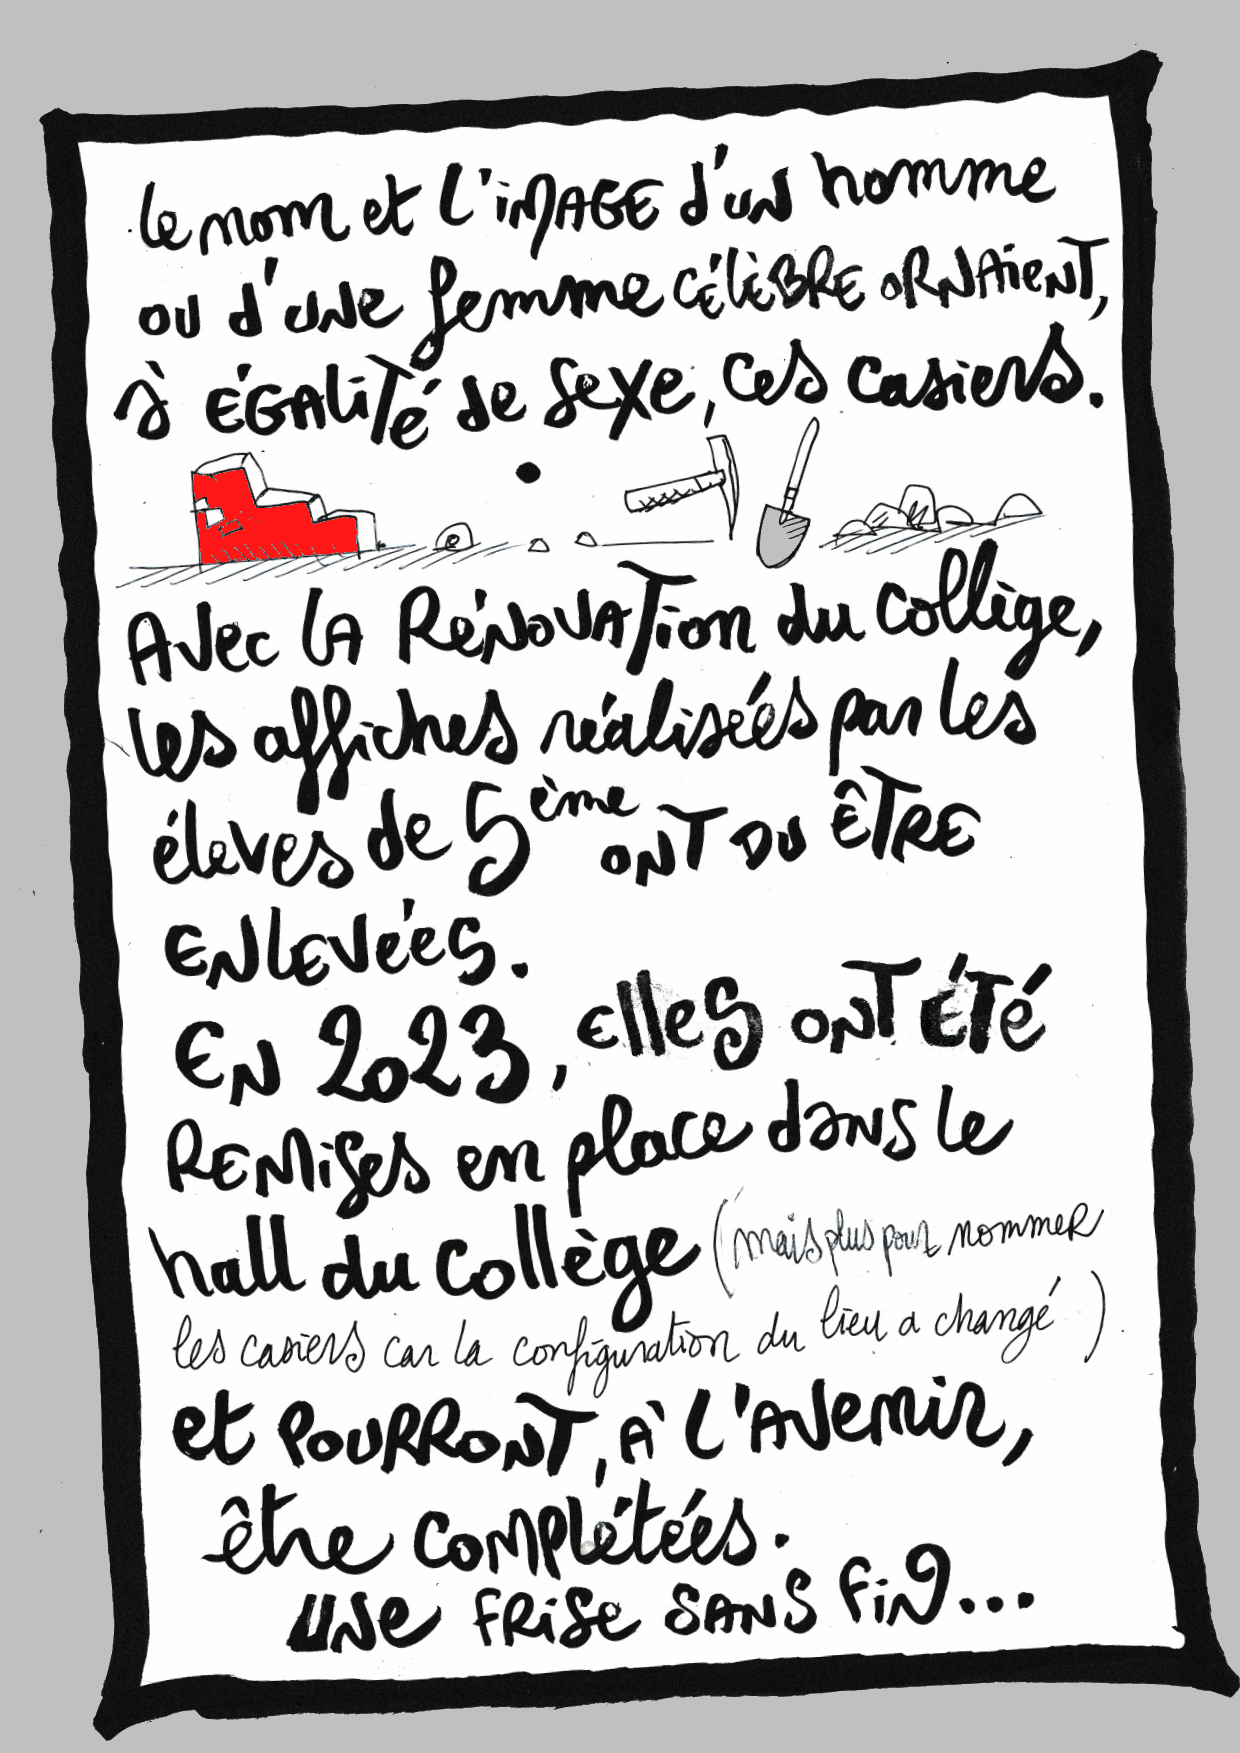 le nom et l'iMAGE d'un homme
ou d'une femme CÉLÈBRE ORNAIENT,
à ÉGALITÉ de sexe, ces casiers.
Avec LA RéNOVATion du collège,
les affiches réalisées par les
élèves de 5ème ONT DU ÊTRE
ENLEVéES.
EN 2023, elles ONT ÉTÉ
REMises en place dans le
hall du collège (mais plus pour nommer
les casiers car la configuration du lieu a changé)
et POURRONT, À L'AVenir,
être COMPLétées.
une FRise SANS FiN...